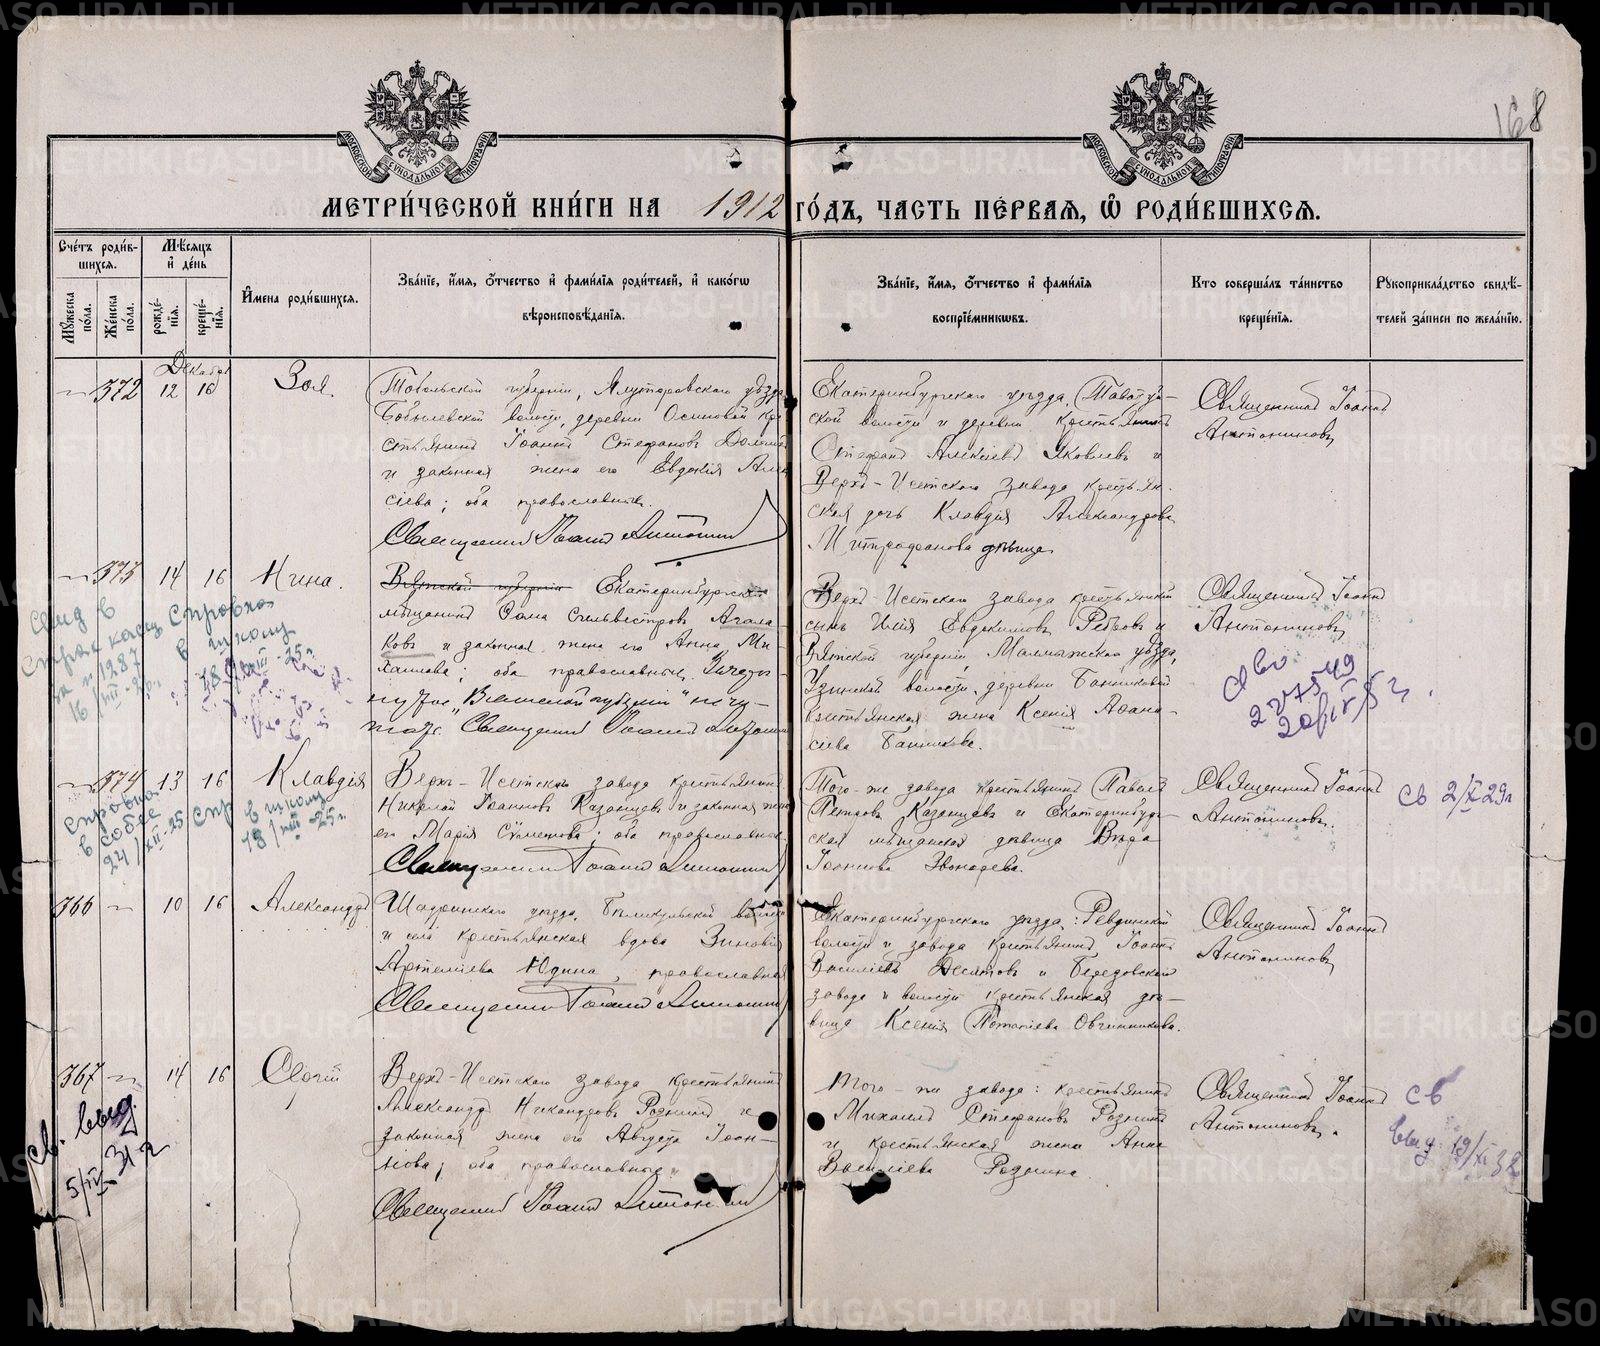 168
МЕТРИ́ЧЕСКОЙ КНИ́ГИ НА 1912 ГО́ДЪ, ЧАСТЬ ПЕ́РВАЯ, Ѡ РОДИ́ВШИХСЯ.
Сче́тъ роди́в-
шихся.
Мѣ́сяцъ
и́ де́нь
Мꙋ́жеска по́ла.
Же́нска по́ла.
рожде́-
нія.
креще́-
нія.
И́мена роди́вшихся.
Зва́ніе, и́мя, о́тчество и́ фами́лія роди́телей, и́ како́гѡ
вѣроисповѣ́данія.
Зва́ніе, и́мя, о́тчество и́ фами́лія
воспріе́мникѡвъ.
Кто соверша́лъ та́инство
креще́нія.
Рꙋкоприкла́дство свидѣ́-
телей за́писи по жела́нію.
Декабрь
372 12 16 Зоя.
Тобольской губерніи, Ялуторовскаго уѣзда
Бобылевской волости, деревни Осиновой кре
стьянинъ Іоаннъ Стефановъ
и законная жена его Евдокія Алек
сіева; оба православные.
Священникъ Іоаннъ Антониновъ
Екатеринбургскаго уѣзда, Таватуй-
ской волости и деревни крестьянинъ
Стефанъ Алексіевъ Яковлевъ и
Верхъ-Исетскаго завода крестьян-
ская дочь Клавдія Александрова
Митрофанова дѣвица
Священникъ Іоаннъ
Антониновъ
373 14 16 Нина.
Вятской губерніи Екатеринбургскій
мѣщанинъ Ѳома Сильвестровъ Агала-
ковъ и законная жена его Анна Ми-
хаилова; оба православные. Зачеркну-
тую "Вятской губерніи" не чи-
тать. Священникъ Іоаннъ Антониновъ
Верхъ-Исетскаго завода крестьянскій
сынъ Илія Евдокимовъ Ребровъ и
Вятской губерніи, Малмыжскаго уѣзда,
Узинской волости, деревни Банниковой
крестьянская жена Ксенія Аѳана-
сіева Банникова.
Священникъ Іоаннъ
Антониновъ
справка
в школу
374 13 16 Клавдія
Верхъ-Исетскаго завода крестьянинъ
Николай Іоанновъ Казанцевъ и законная жена
его Марія Сѵмеонова; оба православные.
Священникъ Іоаннъ Антониновъ
Того-же завода крестьянинъ Павелъ
Петровъ Казанцевъ и Екатеринбург-
ская мѣщанская дѣвица Вѣра
Іоаннова
Священникъ Іоаннъ
Антониновъ.
св 2/X 29г
справка
в собес
24/XII-25
спр в школу
18/VIII-25г.
366 10 16 Александръ
Шадринскаго уѣзда, Бѣликульской волости
и села крестьянская вдова Зиновія
Артеміева Юдина, православная
Священникъ Іоаннъ Антониновъ
Екатеринбургскаго уѣзда: Ревдинской
волости и завода крестьянинъ Іоаннъ
Василіевъ Десятовъ и Березовской
завода и волости крестьянская дѣ-
вица Ксенія Потапіева Овчинникова.
Священникъ Іоаннъ
Антониновъ
367 14 16 Сергій
Верхъ-Исетскаго завода крестьянинъ
Александръ Никандровъ Рознинъ и
законная жена его Августа Іоан-
нова; оба православные.
Священникъ Іоаннъ Антониновъ
Того-же завода: крестьянинъ
Михаилъ Стефановъ Рознинъ
и крестьянская жена Анна
Василіева
Священникъ Іоаннъ
Антониновъ.
св
выд 19/XI 32
св. выд.
5/IV 31г